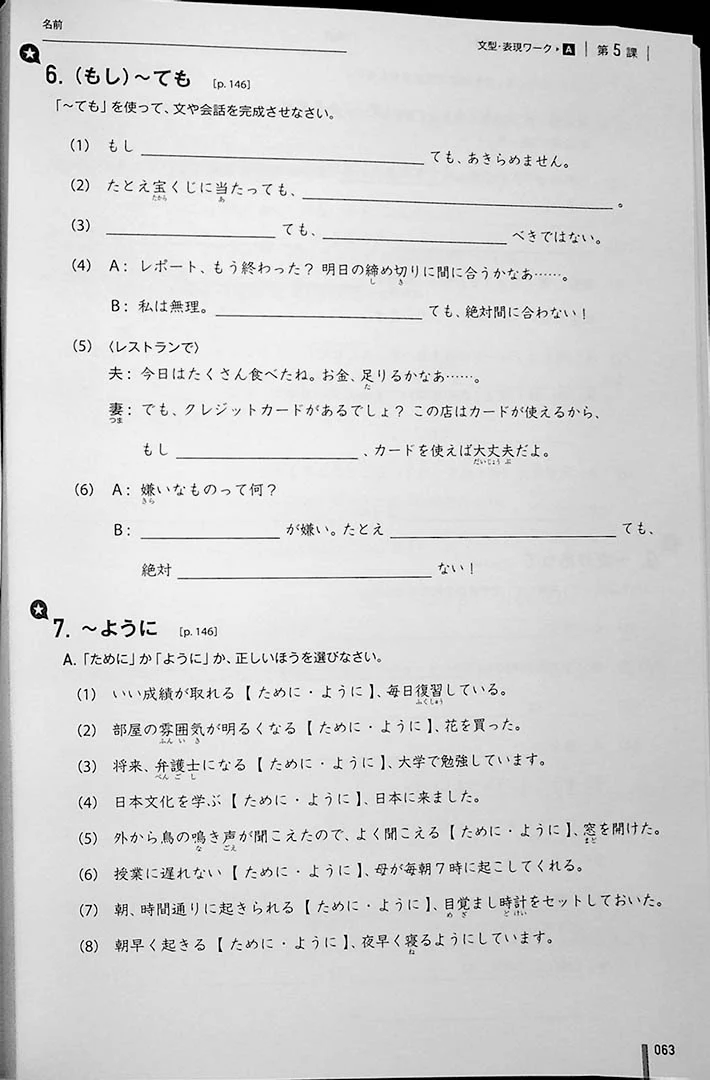 名前
文型・表現ワーク ▶ A | 第5課 |
★
6. (もし)〜ても [p. 146]
「〜ても」を使って、文や会話を完成させなさい。
(1) もし ____________________ ても、あきらめません。
(2) たとえ宝くじに当たっても、____________________。
たから あ
(3) ____________________ ても、____________________ べきではない。
(4) A: レポート、もう終わった? 明日の締め切りに間に合うかなあ……。
し き
B: 私は無理。____________________ ても、絶対間に合わない!
(5) 〈レストランで〉
夫: 今日はたくさん食べたね。お金、足りるかなあ……。
た
妻: でも、クレジットカードがあるでしょ? この店はカードが使えるから、
つま
もし ____________________ 、カードを使えば大丈夫だよ。
だいじょうぶ
(6) A: 嫌いなものって何?
きら
B: ____________________ が嫌い。たとえ ____________________ ても、
絶対 ____________________ ない!
★
7. 〜ように [p. 146]
A.「ために」か「ように」か、正しいほうを選びなさい。
(1) いい成績が取れる【 ために・ように 】、毎日復習している。
ふくしゅう
(2) 部屋の雰囲気が明るくなる【 ために・ように 】、花を買った。
ふんいき
(3) 将来、弁護士になる【 ために・ように 】、大学で勉強しています。
べんごし
(4) 日本文化を学ぶ【 ために・ように 】、日本に来ました。
(5) 外から鳥の鳴き声が聞こえたので、よく聞こえる【 ために・ように 】、窓を開けた。
な ごえ まど
(6) 授業に遅れない【 ために・ように 】、母が毎朝7時に起こしてくれる。
(7) 朝、時間通りに起きられる【 ために・ように 】、目覚まし時計をセットしておいた。
め ざ とけい
(8) 朝早く起きる【 ために・ように 】、夜早く寝るようにしています。
ね
063